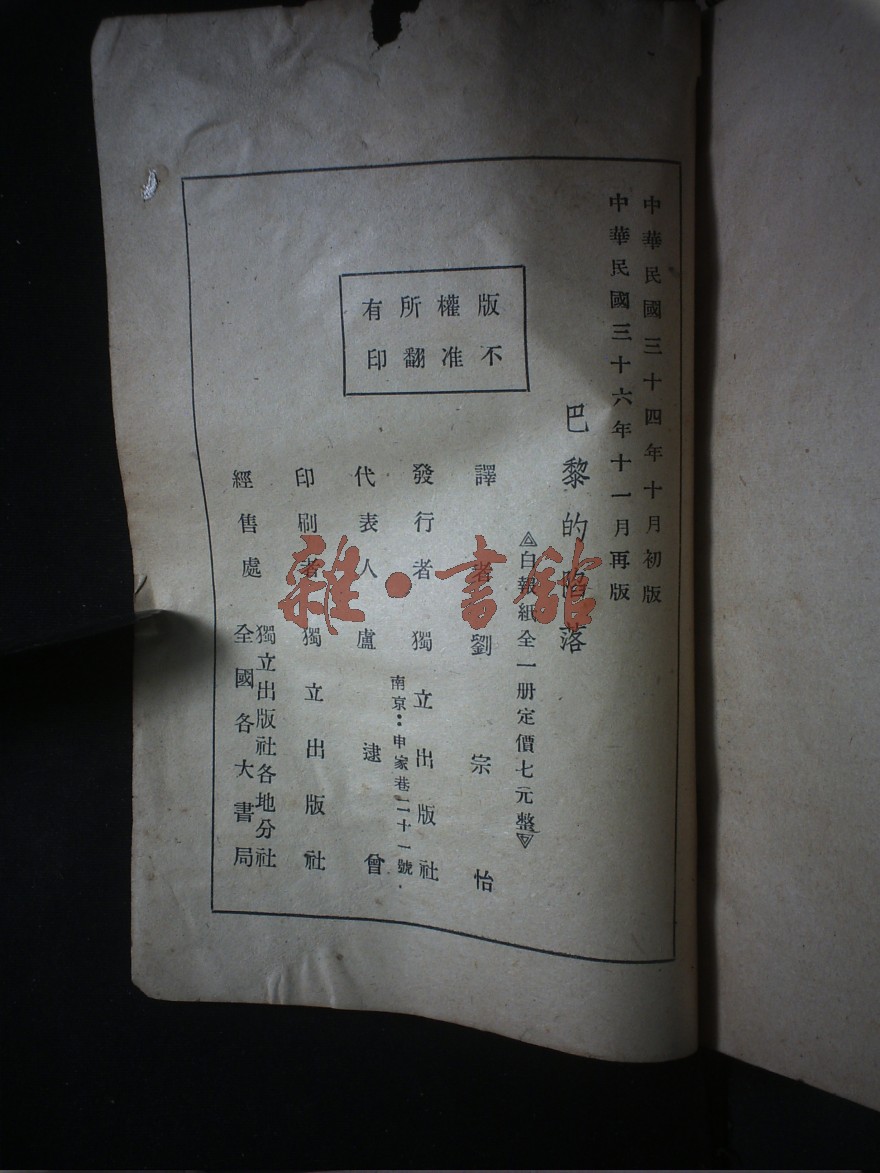 中華民國三十四年十月初版
中華民國三十六年十一月再版
巴黎的陷落
白報紙全一册定價七元整
版權所有
不准翻印
譯者劉宗怡
發行者獨立出版社
南京：申家巷二十一號
代表人盧逮曾
印刷者獨立出版社
經售處
獨立出版社各地分社
全國各大書局
雜·書館